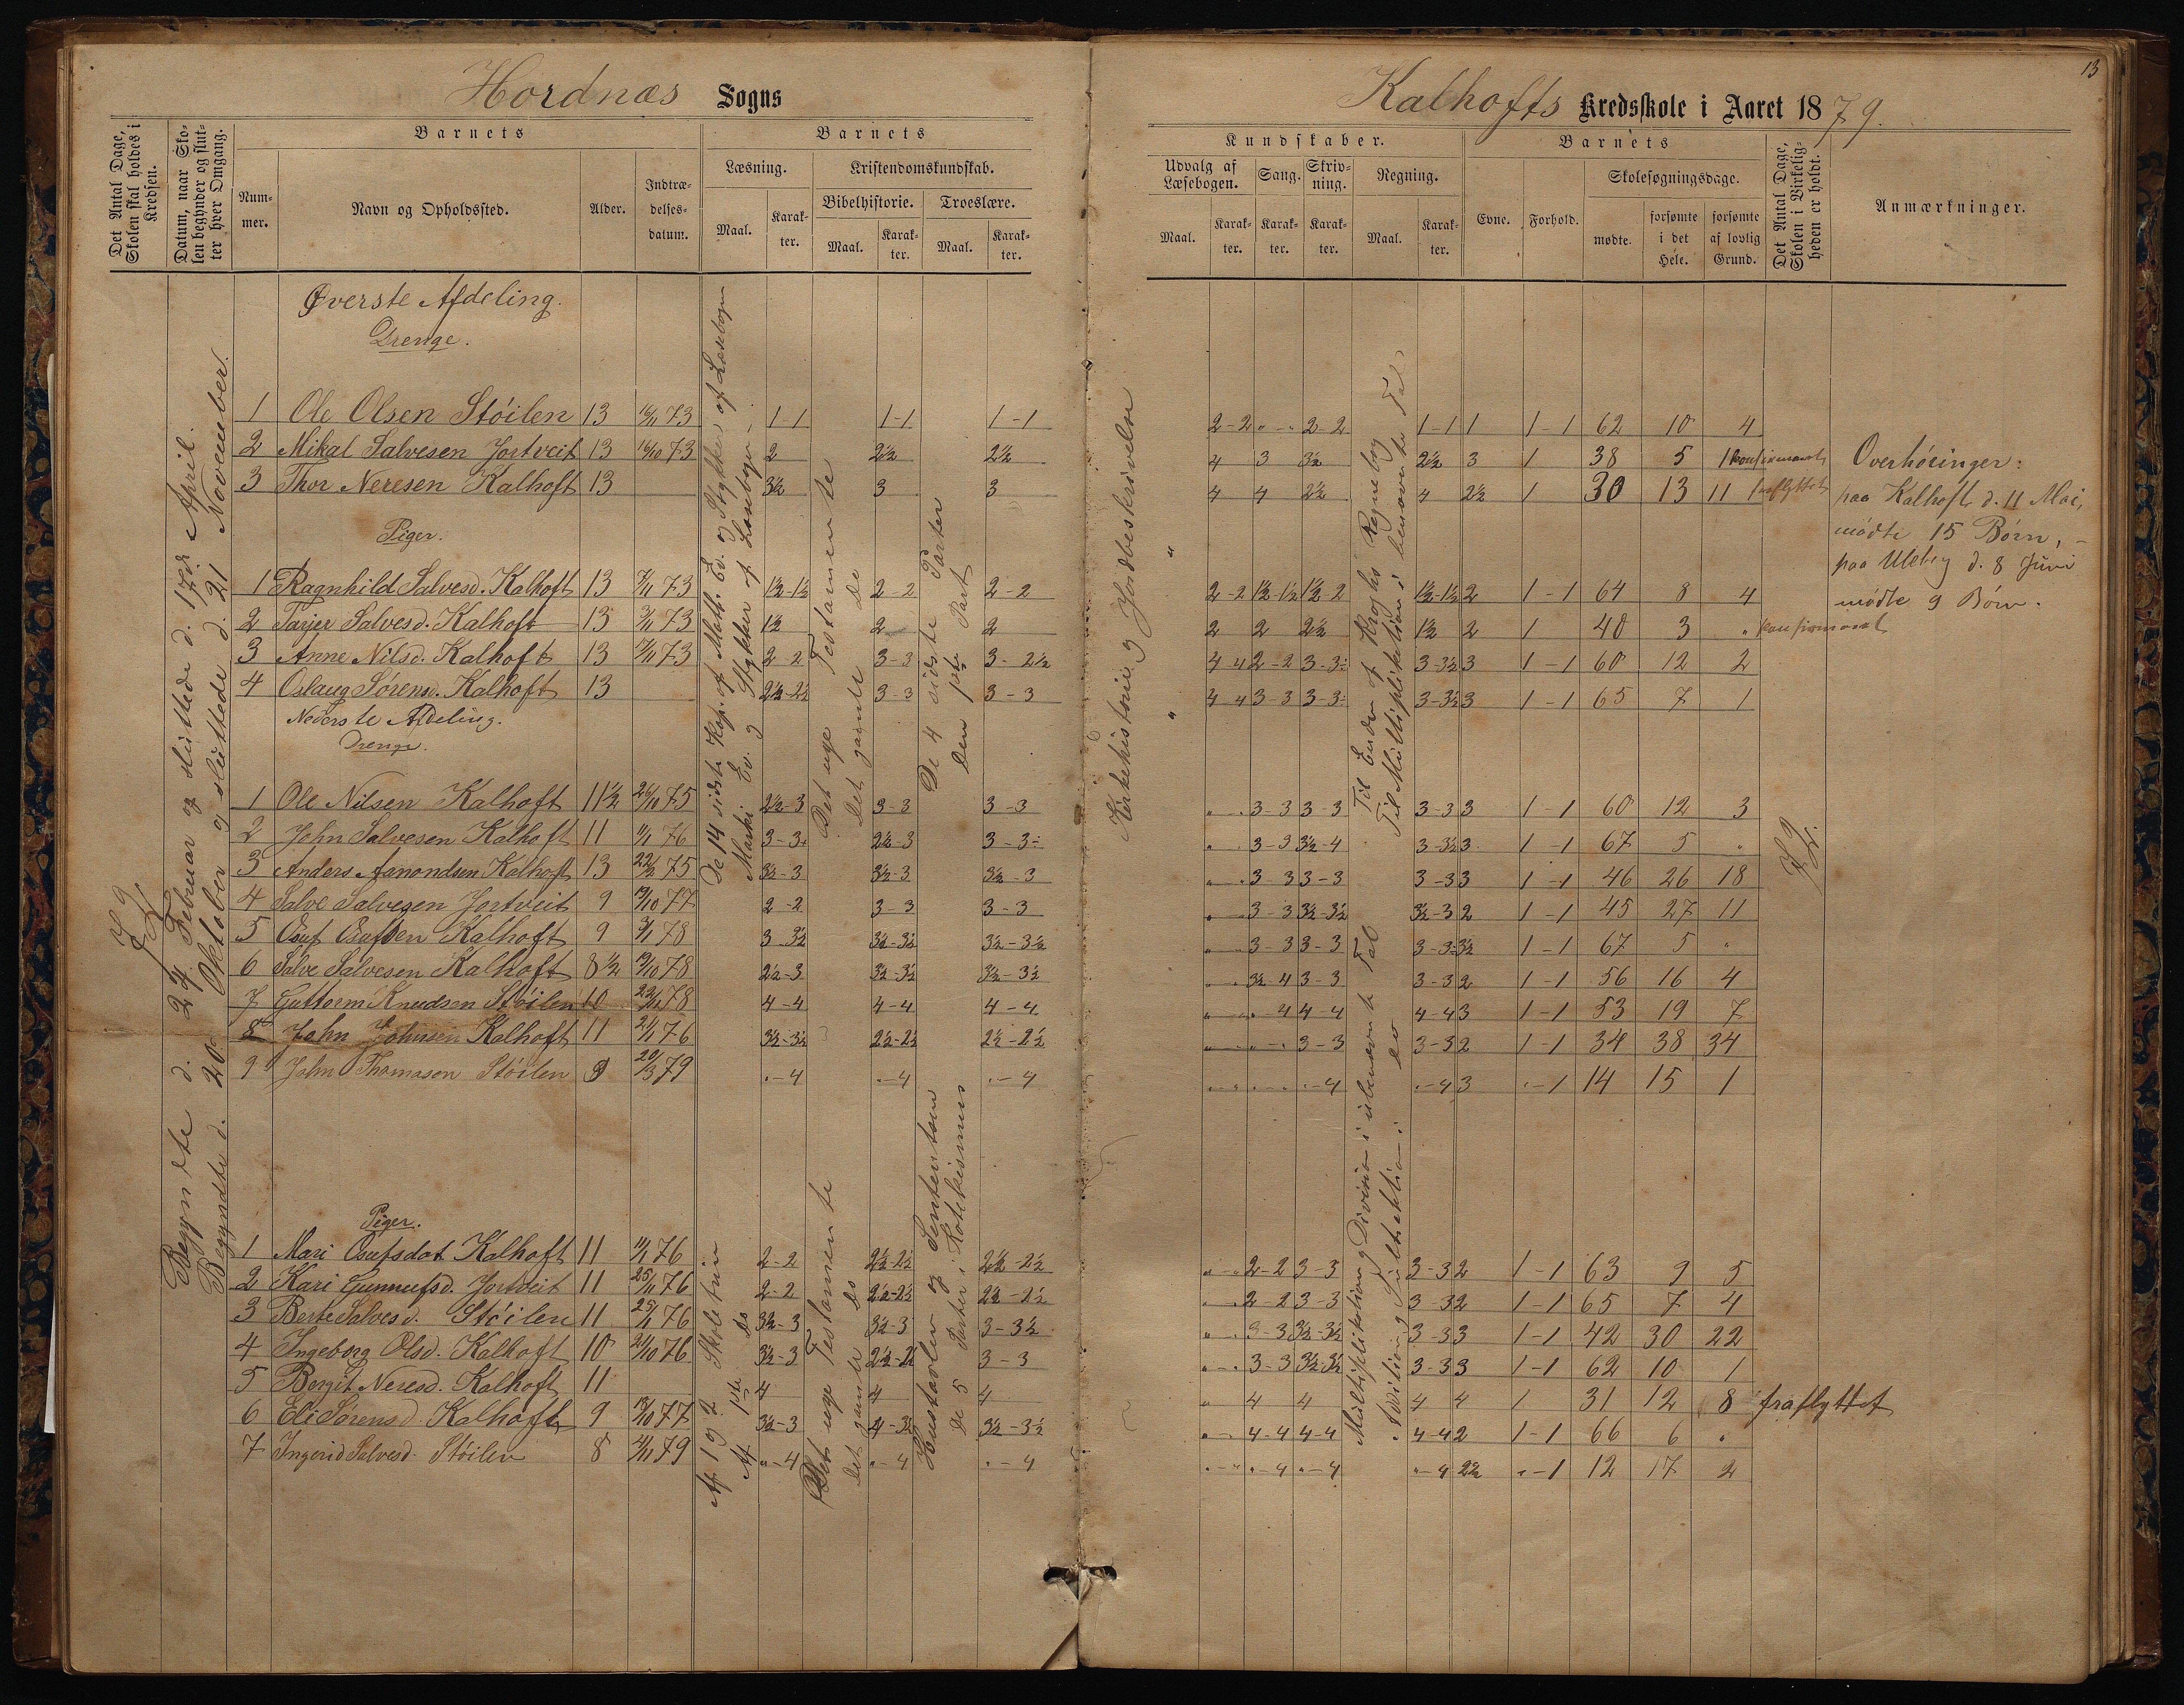 Hordnæs Sogns
Det Antal Dage, Skolen skal holdes i Kredsen.
Datum, naar Skolen begynder og slutter hver Omgang.
Barnets
Nummer.
Navn og Opholdssted.
Alder.
Indtrædelsesdatum.
Barnets
Læsning.
Maal.
Karakter.
Kristendomskundskab.
Bibelhistorie.
Maal.
Karakter.
Troeslære.
Maal.
Karakter.
72
Begyndte d. 24 Februar og sluttede d. 17de April.
Begyndte d. 20 Oktober og sluttede d. 21 November.
De 14 sidste Kap. af Matth. Ev. og Stykker af Læsebogen
Marki Ev. og Stykker af Læsebogen
Det nye Testamente
Det gamle do
De 4 sidste Parter
Den 1ste Part
Øverste Afdeling.
Drenge.
1 Ole Olsen Stöilen 13 16/11 73 1-1 1-1 1-1
2 Mikal Salvesen Jortveit 13 16/10 73 2 2½ 2½
3 Thor Neresen Kalhoft 13 3½ 3 3
Piger.
1 Ragnhild Salvesd. Kalhoft 13 7/11 73 1½-1½ 2-2 2-2
2 Tarjer Salvesd. Kalhoft 13 7/11 73 1½ 2 2
3 Anne Nilsd. Kalhoft 13 17/11 73 2-2 3-3 3-2½
4 Oslaug Sörensd. Kalhoft 13 2½-2½ 3-3 3-3
Nederste Afdeling.
Drenge.
1 Ole Nilsen Kalhoft 11½ 26/10 75 2½-3 3-3 3-3
2 John Salvesen Kalhoft 11 11/1 76 3-3+ 2½-3 3-3÷
3 Anders Aanondsen Kalhoft 13 22/2 75 3½-3 3½-3 3½-3
4 Salve Salvesen Jortveit 9 19/10 77 2-2 3-3 3-3
5 Osuf Osufsen Kalhoft 9 3/1 78 3-3½ 3½-3½ 3½-3½
6 Salve Salvesen Kalhoft 8½ 19/10 78 2½-3 3½-3½ 3½-3½
7 Guttorm Knudsen Stöilen 10 22/11 78 4-4 4-4 4-4
8 John Johnsen Kalhoft 11 24/1 76 3½-3½ 2½-2½ 2½-2½
9 John Thomasen Stöilen 9 20/3 79 "-4 "-4 "-4
Piger.
1 Mari Osufsdat Kalhoft 11 11/1 76 2-2 2½-2½ 2½-2½
2 Kari Gunnufsd. Jortveit 11 25/1 76 2-2 2½-2½ 2½-2½
3 Berte Salvesd. Stöilen 11 25/1 76 3½-3 3½-3 3-3½
4 Ingeborg Olsd. Kalhoft 10 21/10 76 3½-3 2½-2½ 3-3
5 Bergit Neresd. Kalhoft 11 4 4 4
6 Eli Sörensd. Kalhoft 9 19/10 77 3½-3 4-3½ 3½-3½
7 Ingerid Salvesd. Stöilen 8 4/11 79 "-4 "-4 "-4
Af 1 og 2 Skoletrin
Af 1ste do
Det nye Testamente
Det gamle do
Hustavlen og Sententsen
De 5 Parter i Katekismus
13
Kalhofts Kredsskole i Aaret 1879.
Kundskaber.
Udvalg af Læsebogen.
Maal.
Karakter.
Sang.
Karakter.
Skrivning.
Karakter.
Regning.
Maal.
Karakter.
Barnets
Evne.
Forhold.
Skolesøgningsdage.
mødte.
forsømte i det Hele.
forsømte af lovlig Grund.
Det Antal Dage, Skolen i Virkeligheden er holdt.
Anmærkninger.
Kirkehistorie og Jordbeskrivelse
" "
Til Enden af Kroghs Regnebog
Til Multiplikation i benævnte Tal
2-2 "-" 2-2 1-1 1 1-1 62 10 4
4 3 3½ 2½ 3 1 38 5 1 konfirmeret
4 4 2½ 4 2½ 1 30 13 11 fraflyttet
2-2 1½-1½ 1½-2 1½-1½ 2 1-1 64 8 4
2 2 2½ 1½ 2 1 40 3 " konfirmeret
4-4 2-2 3-3÷ 3-3½ 3 1-1 60 12 2
4-4 3-3 3-3÷ 3-3½ 3 1-1 65 7 1
"-" 3-3 3-3 3-3 3 1-1 60 12 3
"-" 3-3 3½-4 3-3½ 3 1-1 67 5 "
"-" 3-3 3-3 3-3 3 1-1 46 26 18
"-" 3-3 3½-3½ 3½-3 2 1-1 45 27 11
"-" 3-3 3-3 3-3 3½ 1-1 67 5 "
"-" 3½-4 3-3 3-3 2 1-1 56 16 4
"-" "-4 4-4 4-4 3 1-1 53 19 7
"-" "-" 3-3 3-3 2 1-1 34 38 34
"-" "-" "-4 "-4 3 "-1 14 15 1
Multiplikation og Division i ubenævnte Tal
Addition og Subtraktion i do
"-" 2-2 3-3 3-3 2 1-1 63 9 5
"-" 2-2 3-3 3-3 2 1-1 65 7 4
"-" 3-3 3½-3½ 3-3 3 1-1 42 30 22
"-" 3-3 3½-3½ 3-3 3 1-1 62 10 1
" 4 4 4 4 1 31 12 8 fraflyttet
"-" 4-4 4-4 4-4 2 1-1 66 6 "
"-" "-4 "-4 "-4 2½ "-1 12 17 2
72.
Overhöringer:
paa Kalhoft d. 11 Mai,
mødte 15 Børn, –
paa Uleby d. 8 Juni
mødte 9 Börn.